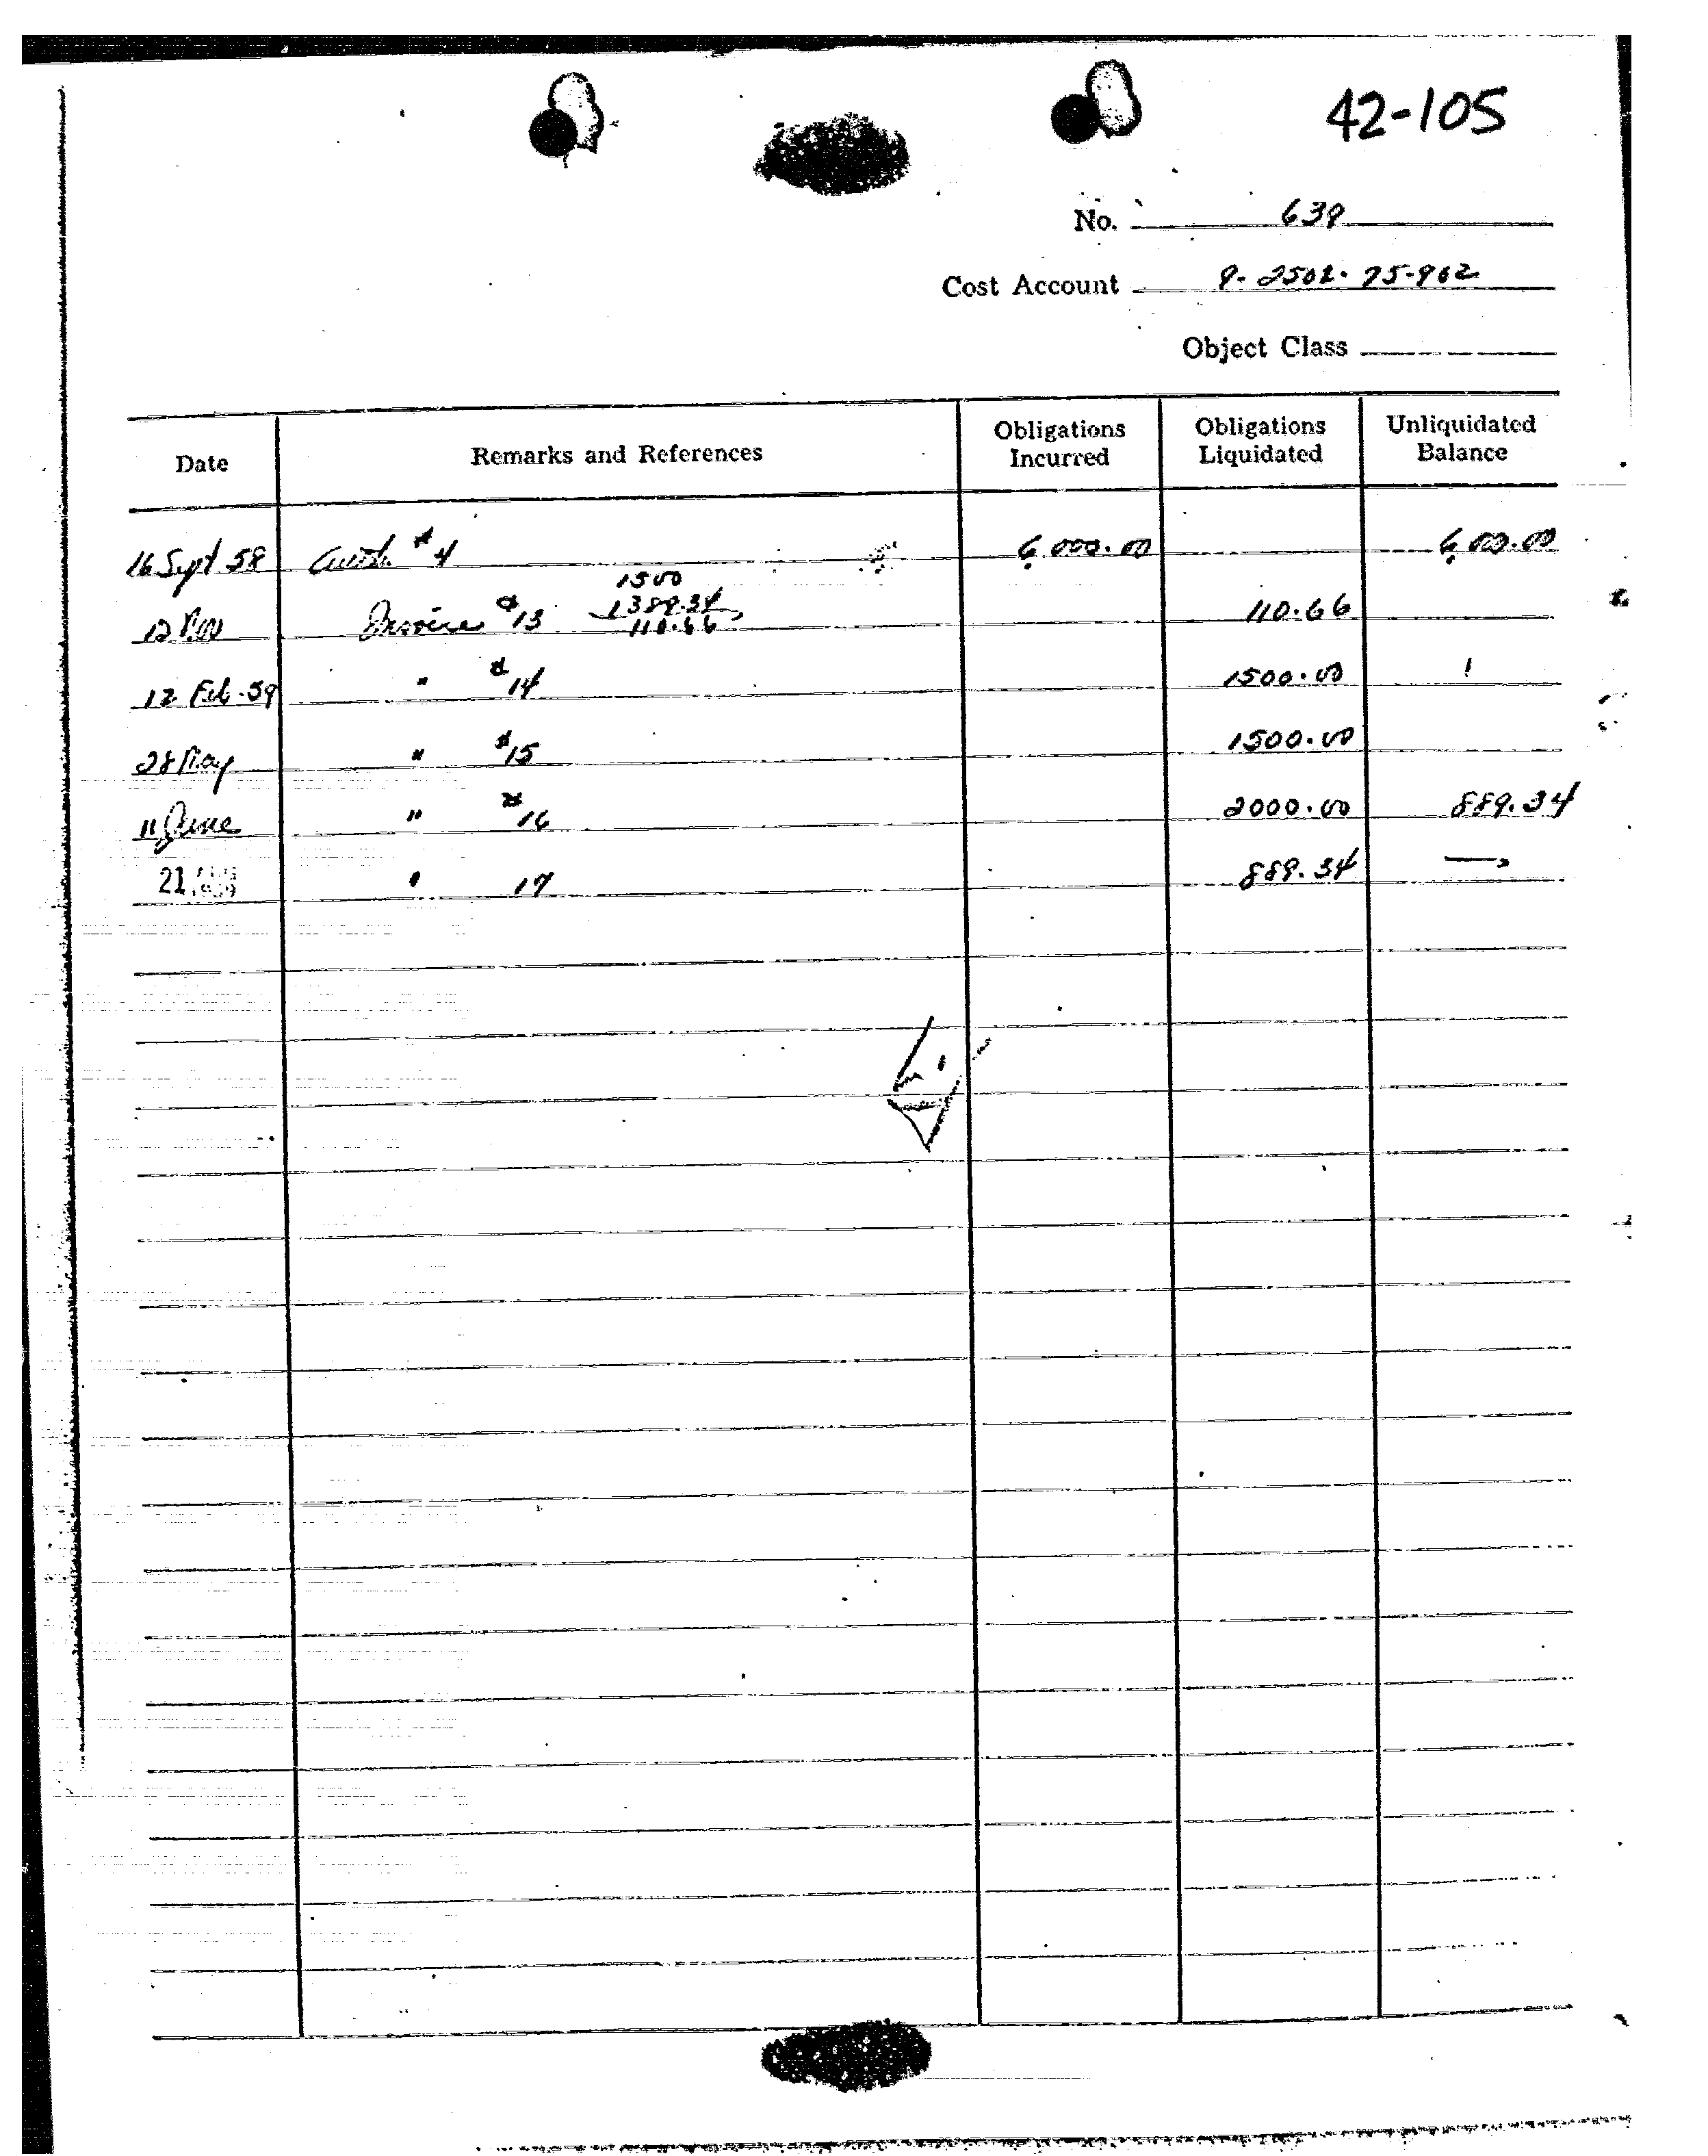 42-105
No. 639
Cost Account 9-2502-75-902
Object Class
Date Remarks and References Obligations Incurred Obligations Liquidated Unliquidated Balance
16 Sept 58 Auth. #4 6,000.00 6,000.00
1500
12 Nov Invoice #13 1389.34 110.66
110.66
12 Feb. 59 " #14 1500.00
28 May " #15 1500.00
11 June " #16 2000.00 889.34
21 AUG 1959 " 17 889.34 —